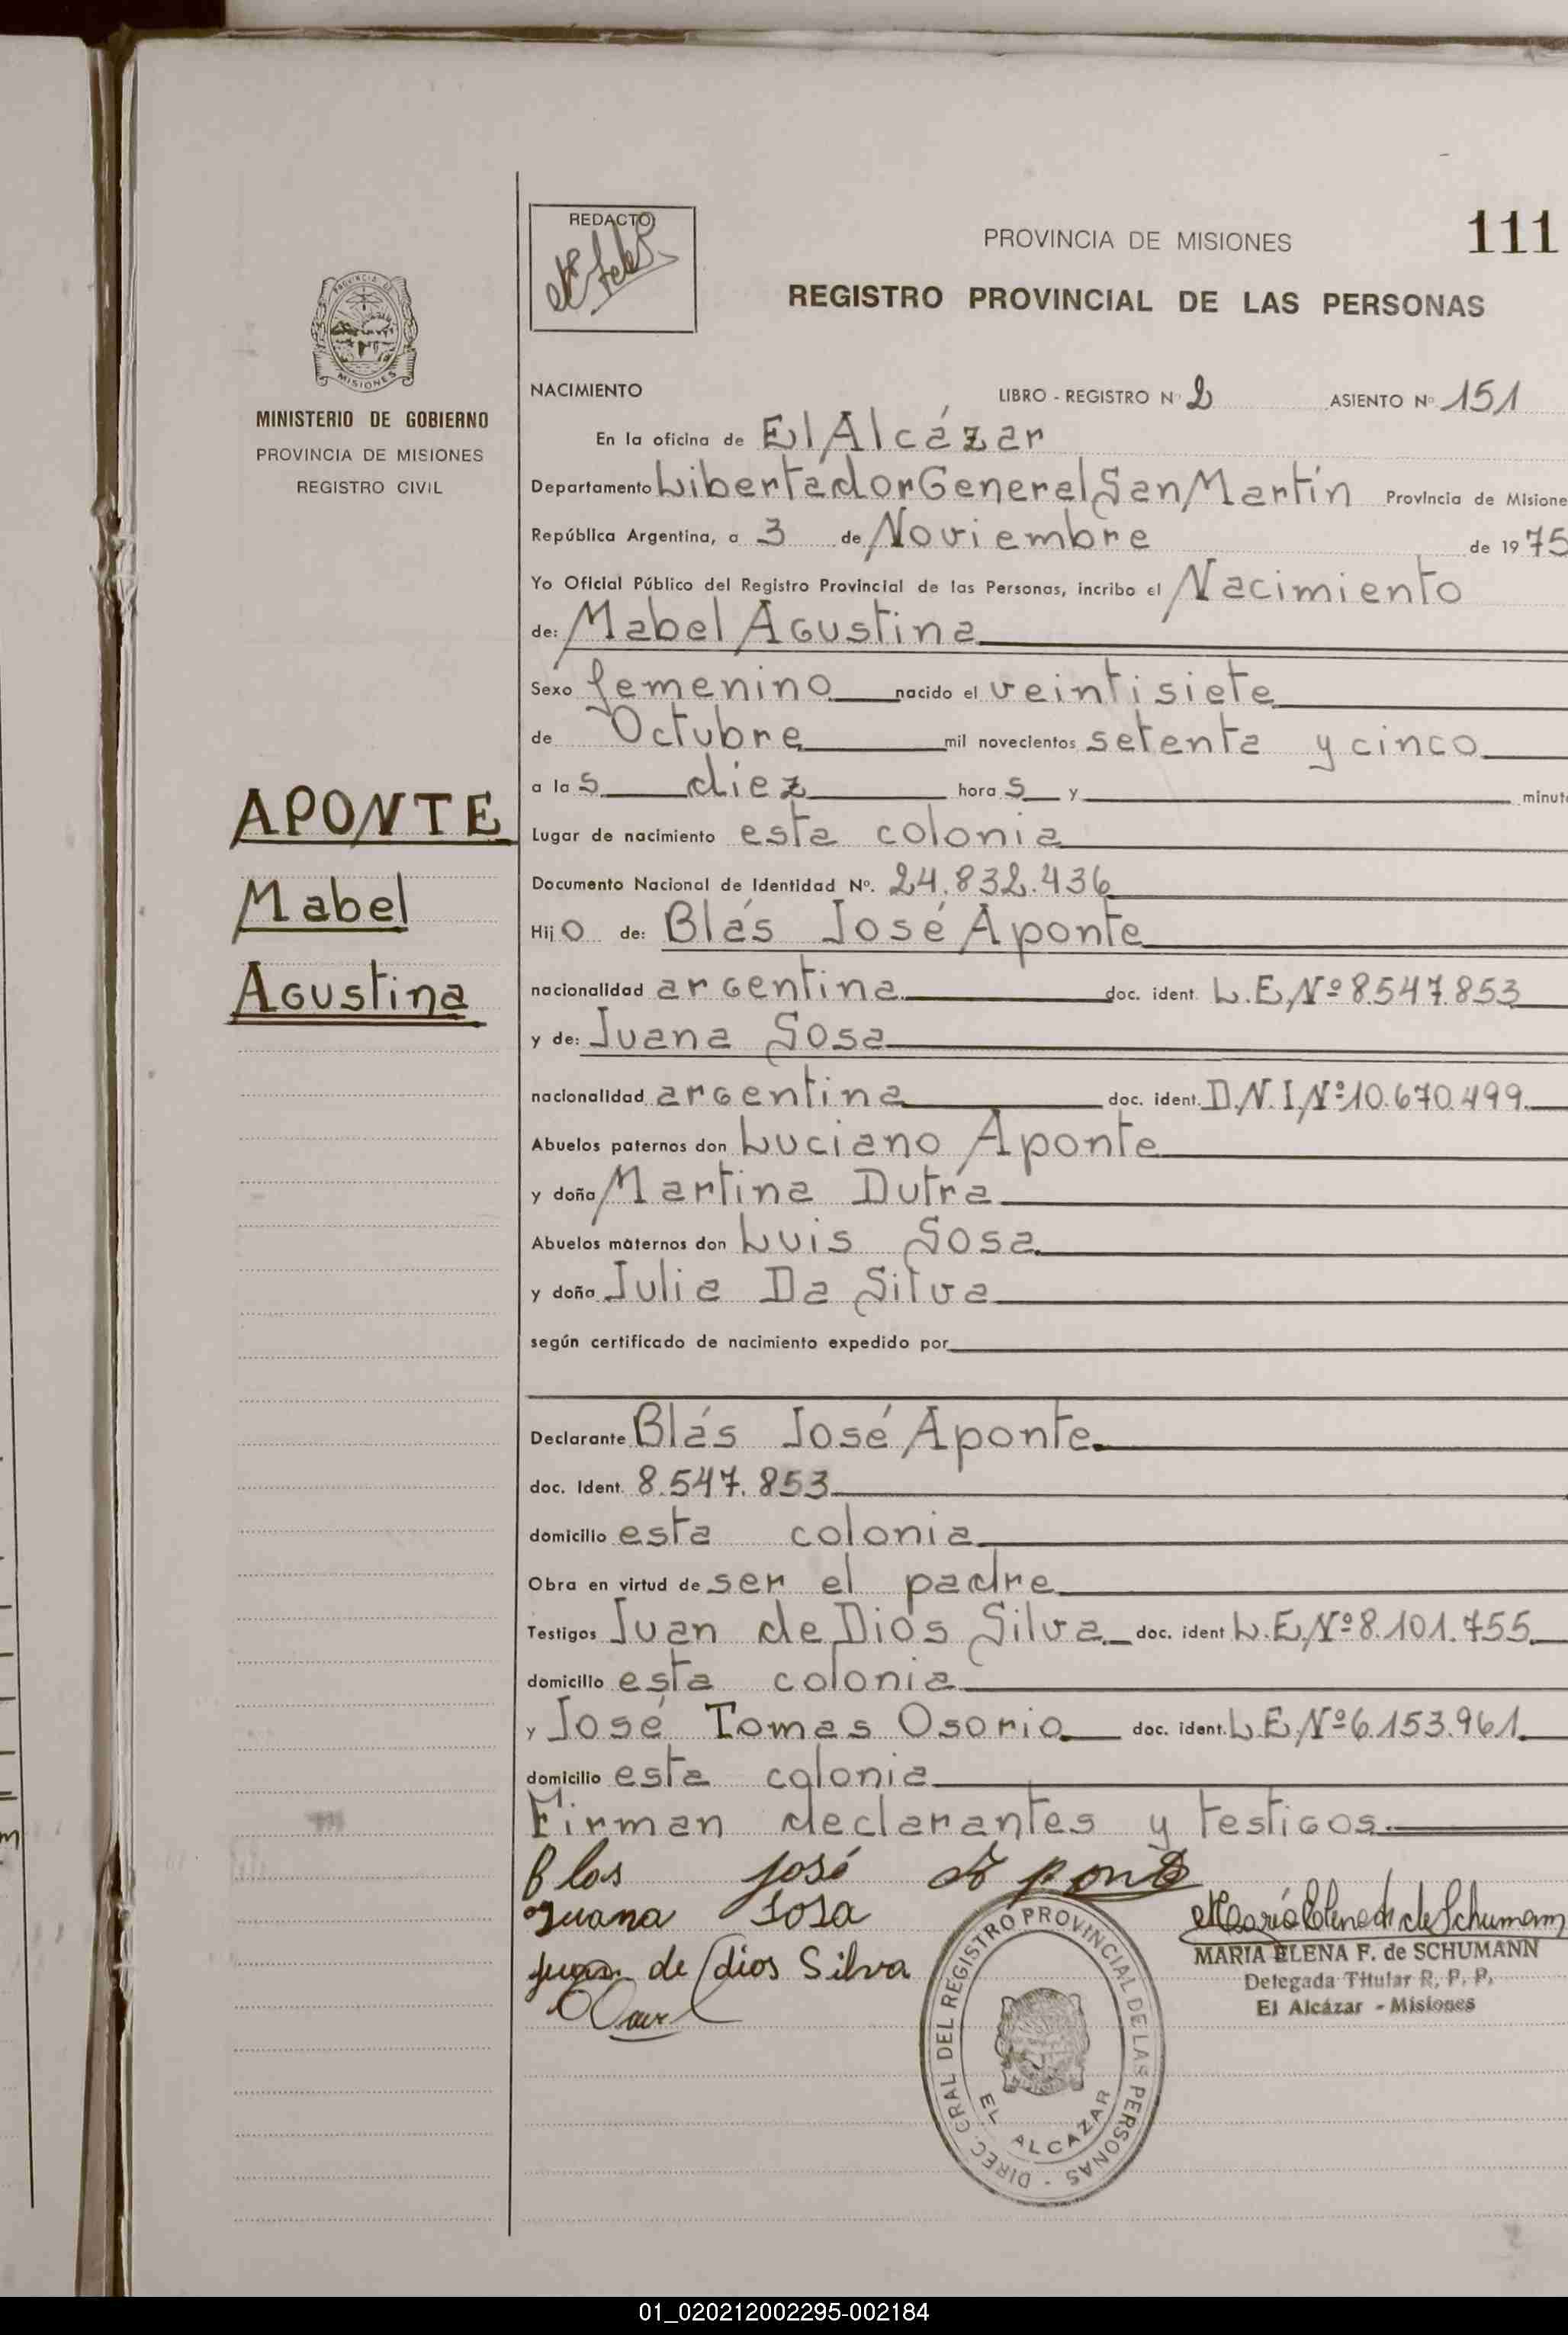 REDACTO
PROVINCIA DE MISIONES
111
REGISTRO PROVINCIAL DE LAS PERSONAS
PROVINCIA DE
MISIONES
MINISTERIO DE GOBIERNO
PROVINCIA DE MISIONES
REGISTRO CIVIL
NACIMIENTO LIBRO - REGISTRO Nº 2 ASIENTO Nº 151
En la oficina de El Alcázar
Departamento Libertador General San Martín Provincia de Misione
República Argentina, a 3 de Noviembre de 1975
Yo Oficial Público del Registro Provincial de las Personas, incribo el Nacimiento
de: Mabel Agustina
Sexo femenino nacido el veintisiete
de Octubre mil novecientos setenta y cinco
a la s diez hora s y minut
APONTE
Lugar de nacimiento esta colonia
Documento Nacional de Identidad Nº. 24.832.436
Mabel
Hij o de: Blás José Aponte
Agustina
nacionalidad argentina doc. ident. L.E.Nº 8.547.853
y de: Juana Sosa
nacionalidad argentina doc. ident. D.N.I.Nº 10.670.499
Abuelos paternos don Luciano Aponte
y doña Martina Dutra
Abuelos maternos don Luis Sosa
y doña Julia Da Silva
según certificado de nacimiento expedido por
Declarante Blás José Aponte
doc. Ident. 8.547.853
domicilio esta colonia
Obra en virtud de ser el padre
Testigos Juan de Dios Silva doc. ident L.E.Nº 8.101.755
domicilio esta colonia
y José Tomas Osorio doc. ident. L.E.Nº 6.153.961
domicilio esta colonia
Firman declarantes y testigos
Blas José Aponte
Juana Sosa
Juan de dios Silva
MARIA ELENA F. de SCHUMANN
Delegada Titular R. P. P.
El Alcázar - Misiones
DIREC. GRAL DEL REGISTRO PROVINCIAL DE LAS PERSONAS -
EL ALCAZAR
01_020212002295-002184